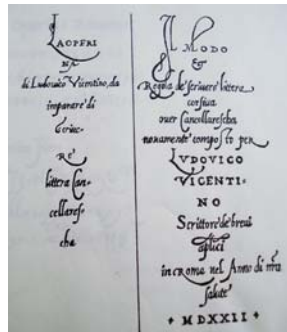 LAOPERI
NA
di Ludouico Vicentino, da
imparare di
scriue-
re
littera Can-
cellares-
cha
IL MODO
&
Regola de scriuere littera
corsiua
ouer Cancellarescha
nouamente composto per
LVDOVICO
VICENTI-
NO
Scrittore de breui
aplici
in ROMA nel Anno di nra
salute
MDXXII